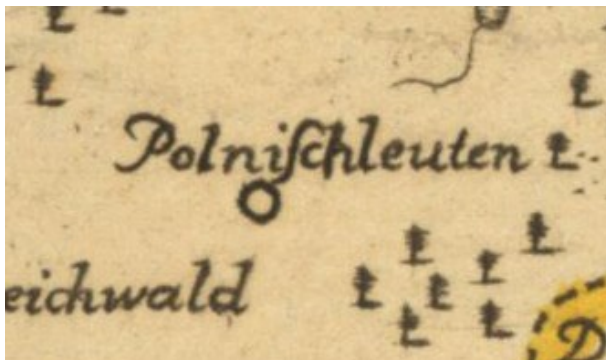 Polniſchleuten
eichwald
D